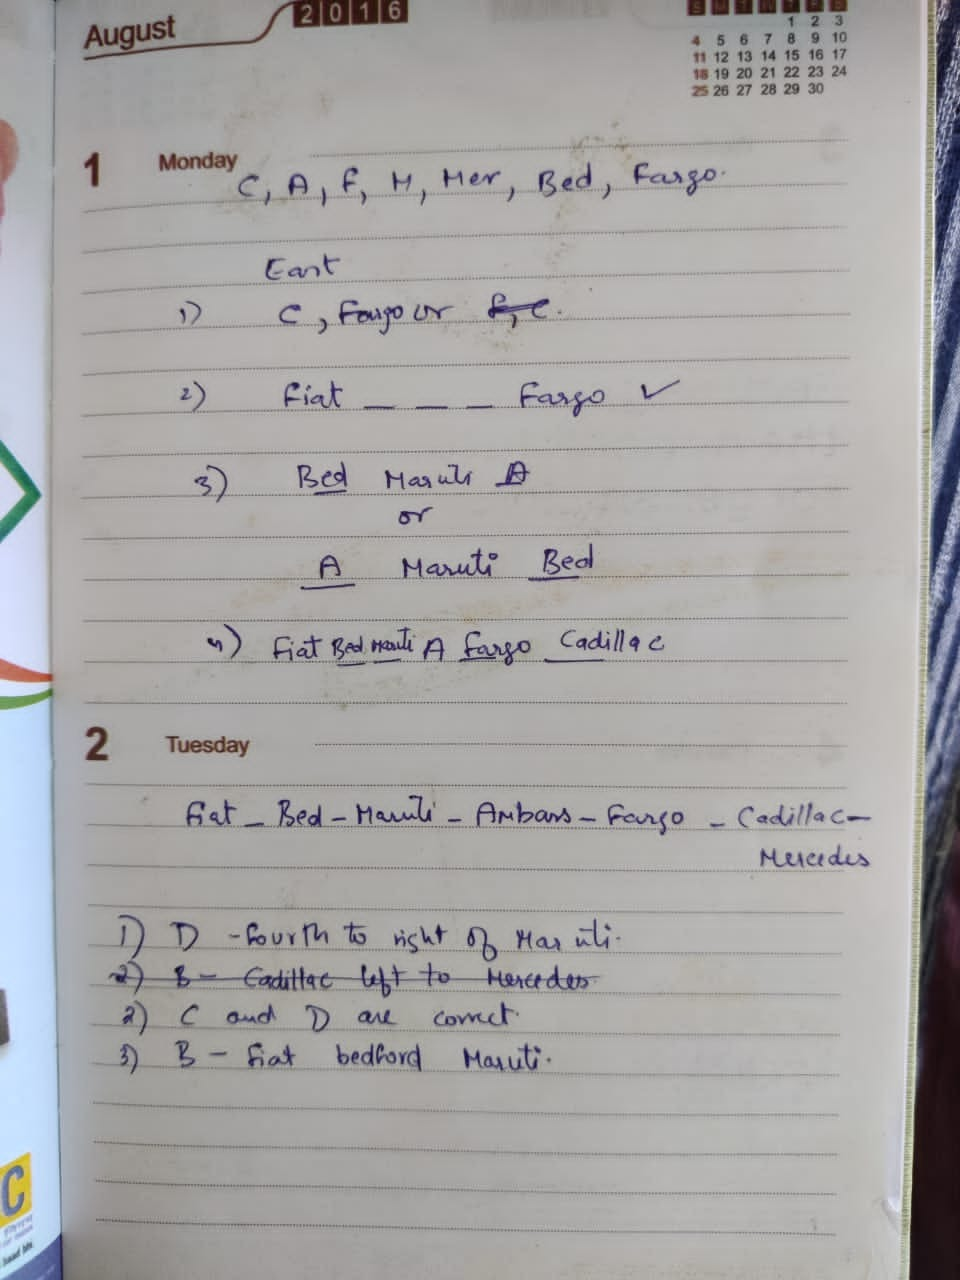 August
2016
S M T W T F S
1 2 3
4 5 6 7 8 9 10
11 12 13 14 15 16 17
18 19 20 21 22 23 24
25 26 27 28 29 30
1 Monday
C, A, F, M, Mer, Bed, Fargo.
East
1) C, Fargo or F, C.
2) Fiat _ _ _ Fargo ✓
3) Bed Maruti A
or
A Maruti Bed
4) Fiat Bed Maruti A Fargo Cadillac
2 Tuesday
Fiat - Bed - Maruti - Ambass - Fargo - Cadillac -
Mercedes
1) D - fourth to right of Maruti.
2) B - Cadillac left to Mercedes
2) C and D are correct.
3) B - Fiat bedford Maruti.
C